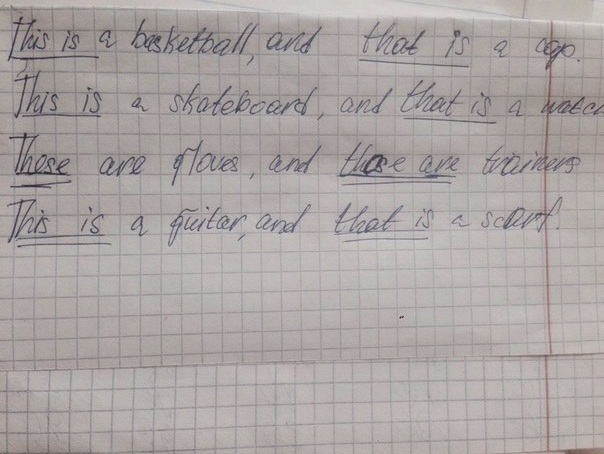 This is a basketball, and that is a cap.
This is a skateboard, and that is a watch
These are gloves, and those are trainers
This is a guitar, and that is a scarf.